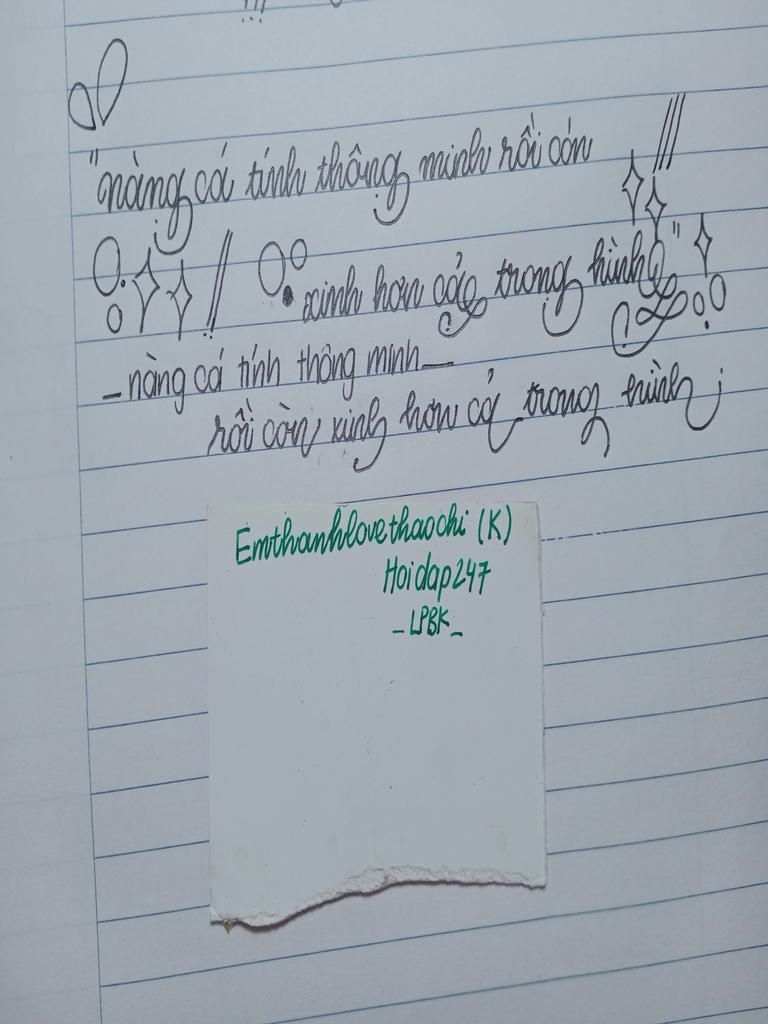 "nàng cá tính thông minh rồi còn
xinh hơn cả trong hình"
_nàng cá tính thông minh_
rồi còn xinh hơn cả trong hình
Emthanhlovethaochi (K)
Hoidap247
_LPBK_